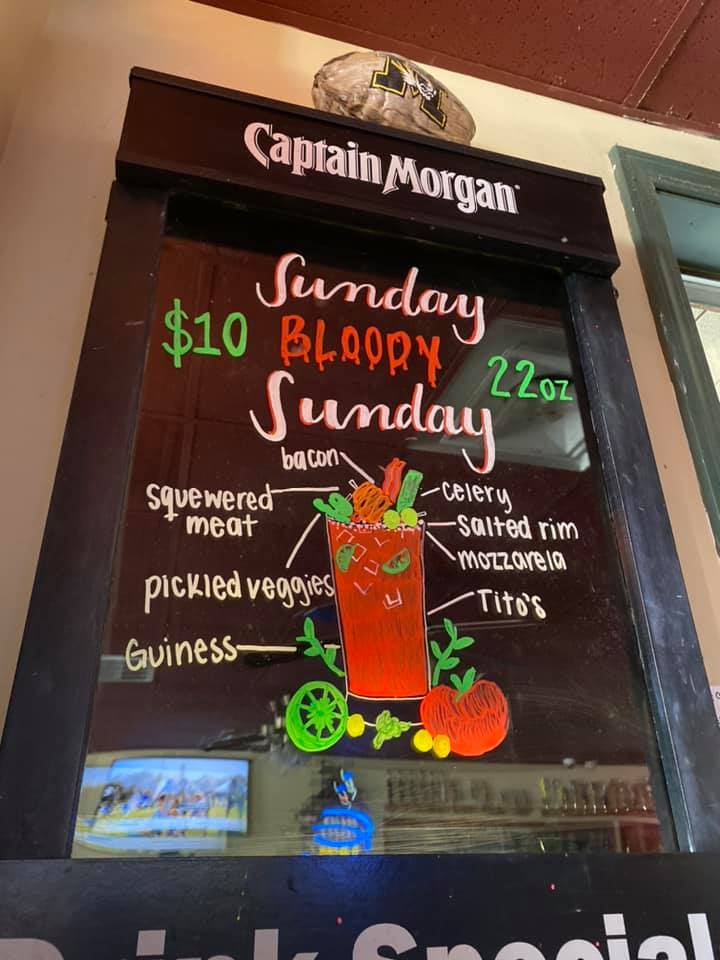 M
Captain Morgan
Sunday
$10 BLOODY 22oz
Sunday
bacon
squewered meat
celery
salted rim
mozzarela
pickled veggies
Tito's
Guiness
Drink Special